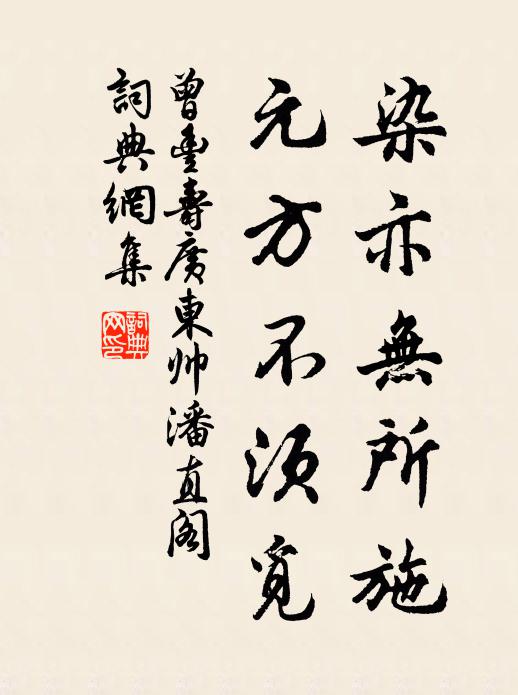 染亦無所施
元方不須覓
曾豐壽廣東帅潘直阁
詞典網集
詞典
网印